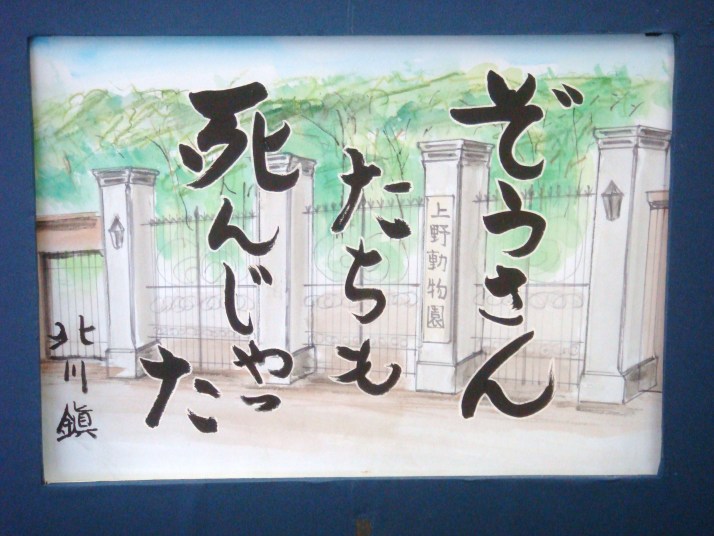 ぞうさん
たちも
死んじゃった
上野動物園
北川鎮